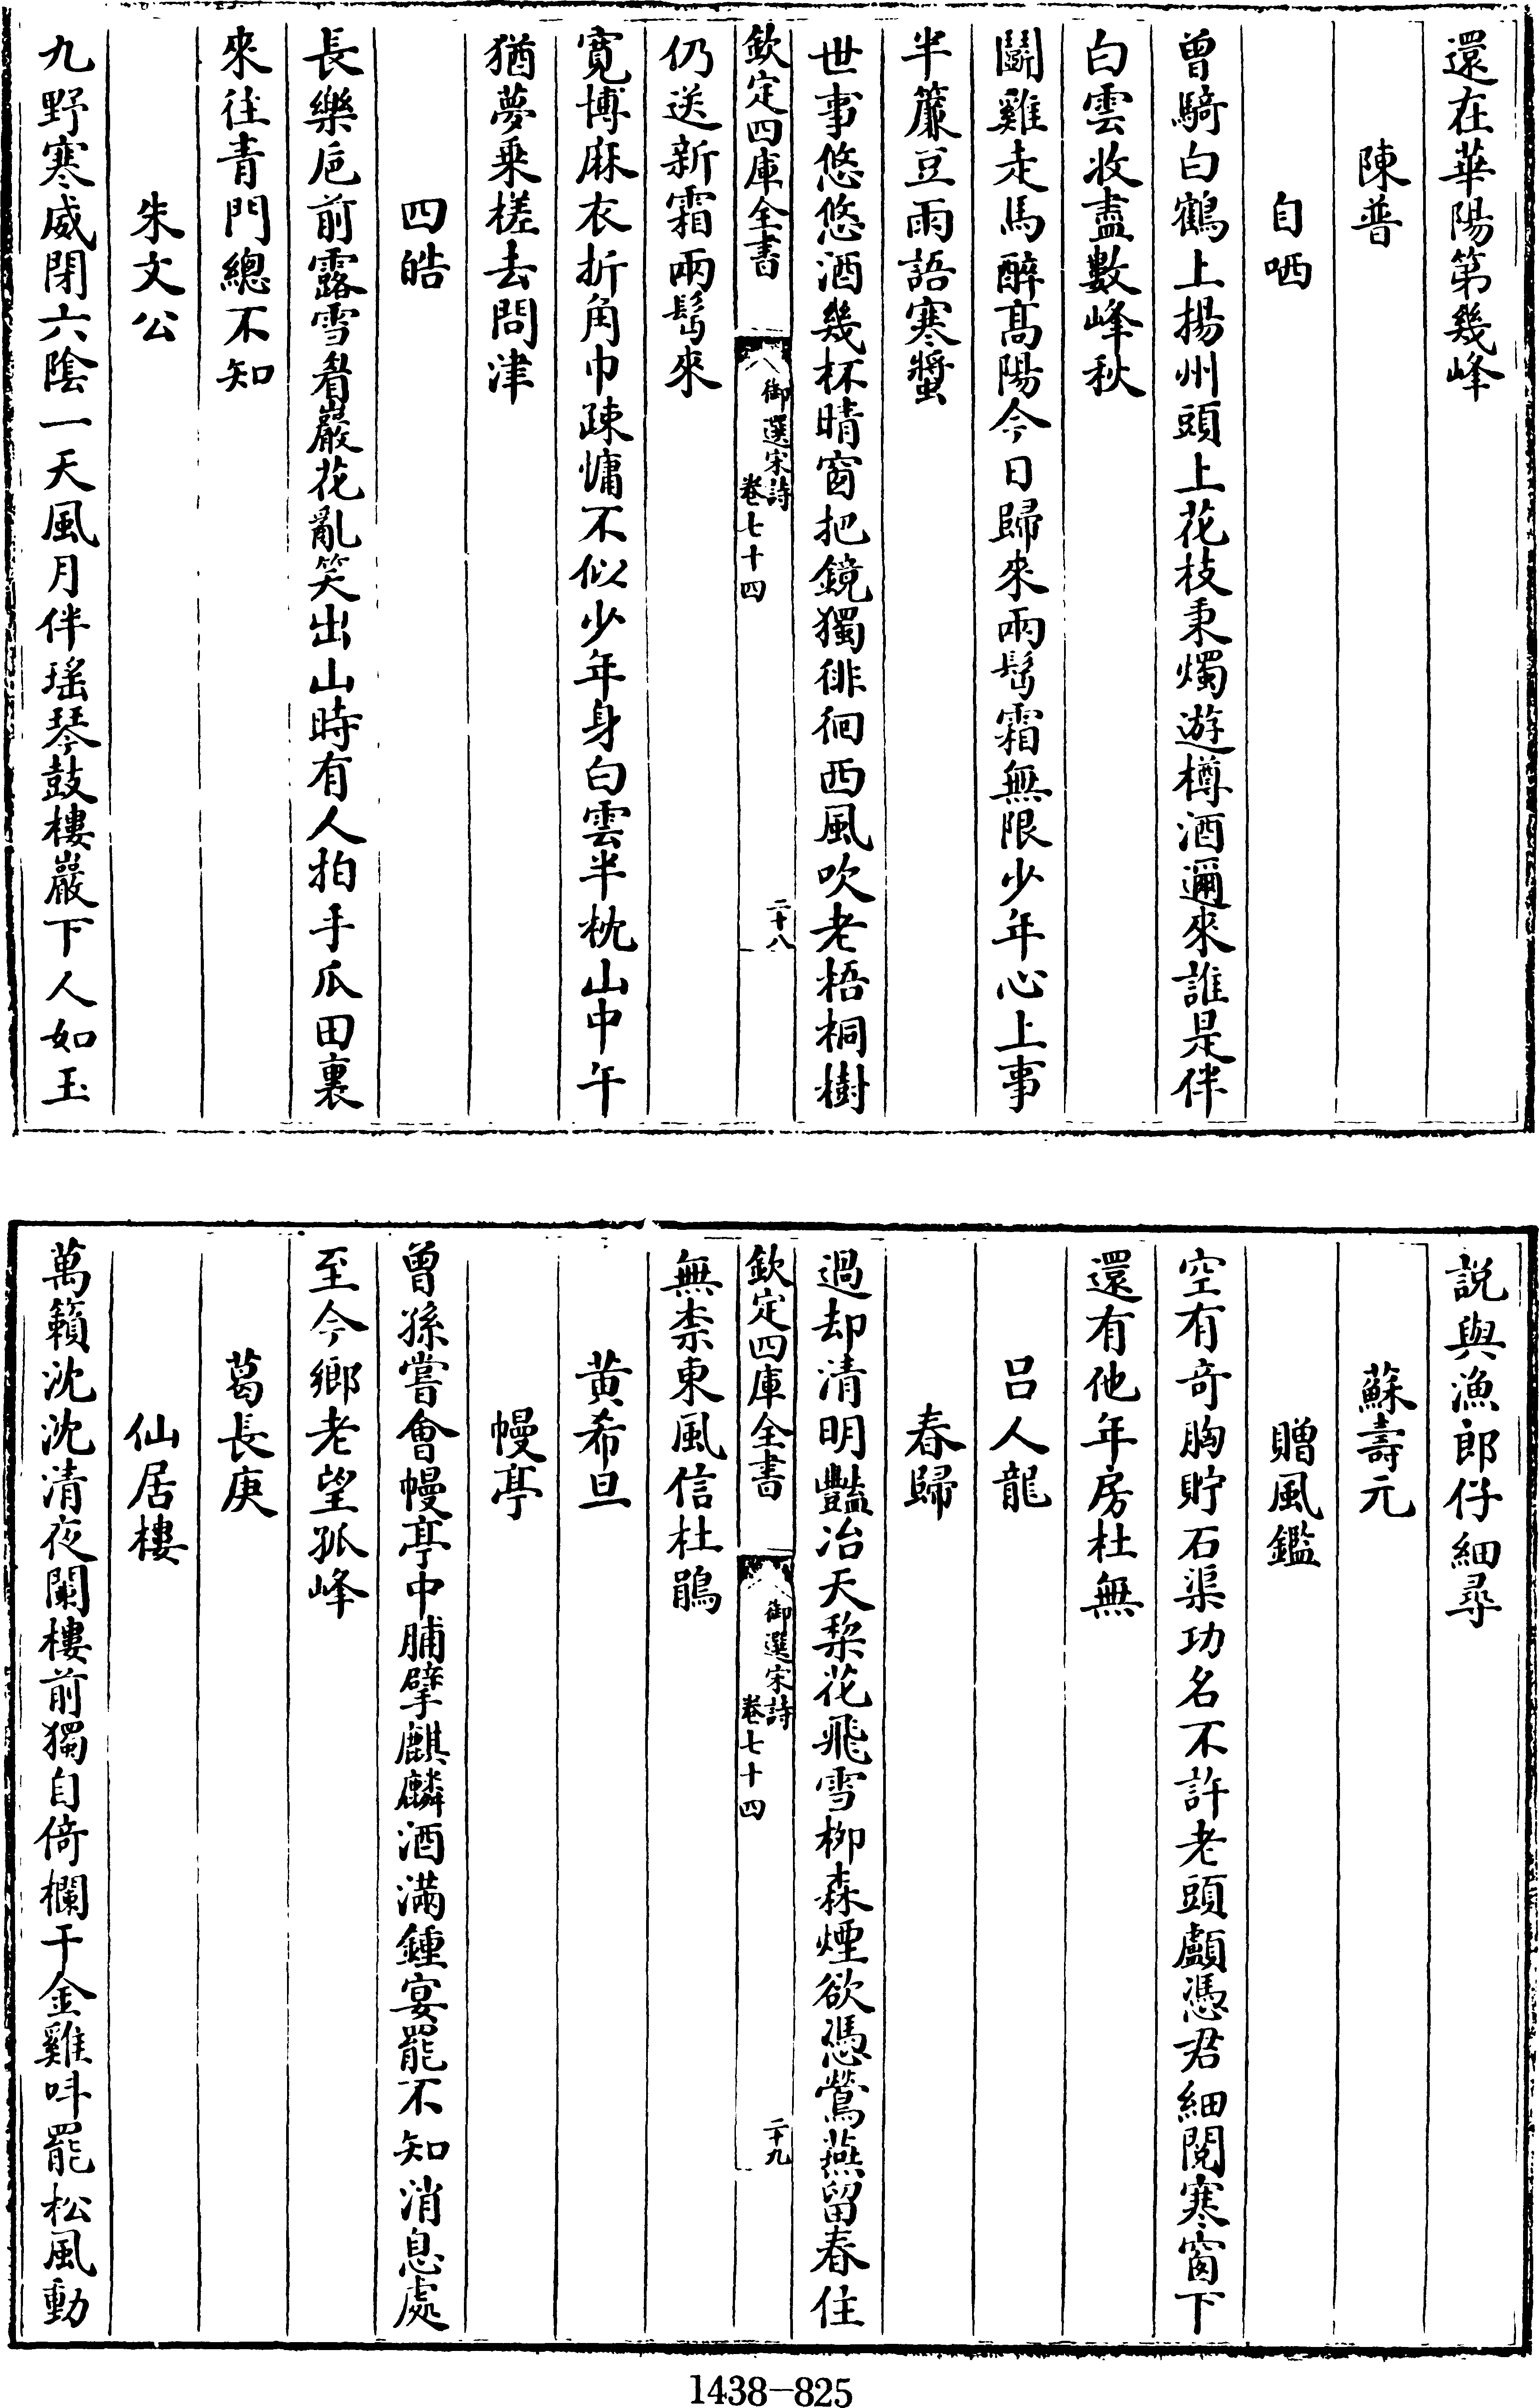 還在華陽第幾峰
陳普
自哂
曾騎白鶴上揚州頭上花枝秉燭遊樽酒邇來誰是伴
白雲收盡數峰秋
鬬雞走馬醉髙陽今日歸來兩髩霜無限少年心上事
半簾豆雨語寒螿
世事悠悠酒幾杯晴窗把鏡獨徘徊西風吹老梧桐樹
欽定四庫全書
御選宋詩
卷七十四
二十八
仍送新霜兩髩來
寛博麻衣折角巾疎慵不似少年身白雲半枕山中午
猶夢乗槎去問津
四皓
長樂巵前露雪看巖花亂笑出山時有人拍手瓜田裏
來往青門總不知
朱文公
九野寒威閉六陰一天風月伴瑤琴鼓樓巖下人如玉
説與漁郎仔細尋
蘇壽元
贈風鑑
空有奇胸貯石渠功名不許老頭顱憑君細閱寒窗下
還有他年房杜無
吕人龍
春歸
過却清明豔冶天棃花飛雪栁森煙欲憑鶯燕留春住
欽定四庫全書
御選宋詩
卷七十四
二十九
無柰東風信杜鵑
黄希旦
幔亭
曽孫嘗會幔亭中脯擘麒麟酒滿鍾宴罷不知消息處
至今鄉老望孤峰
葛長庚
仙居樓
萬籟沈沈清夜闌樓前獨自倚欄干金雞呌罷松風動
1438-825